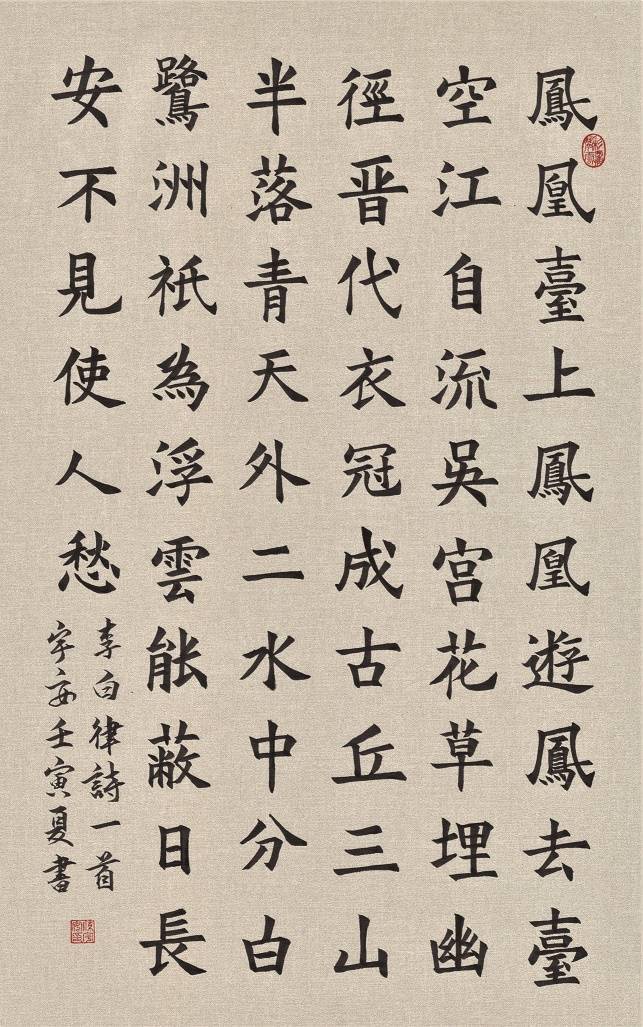 鳳凰臺上鳳凰遊鳳去臺
空江自流吳宮花草埋幽
徑晉代衣冠成古丘三山
半落青天外二水中分白
鷺洲祇為浮雲能蔽日長
安不見使人愁
李白律詩一首
宇安壬寅夏書